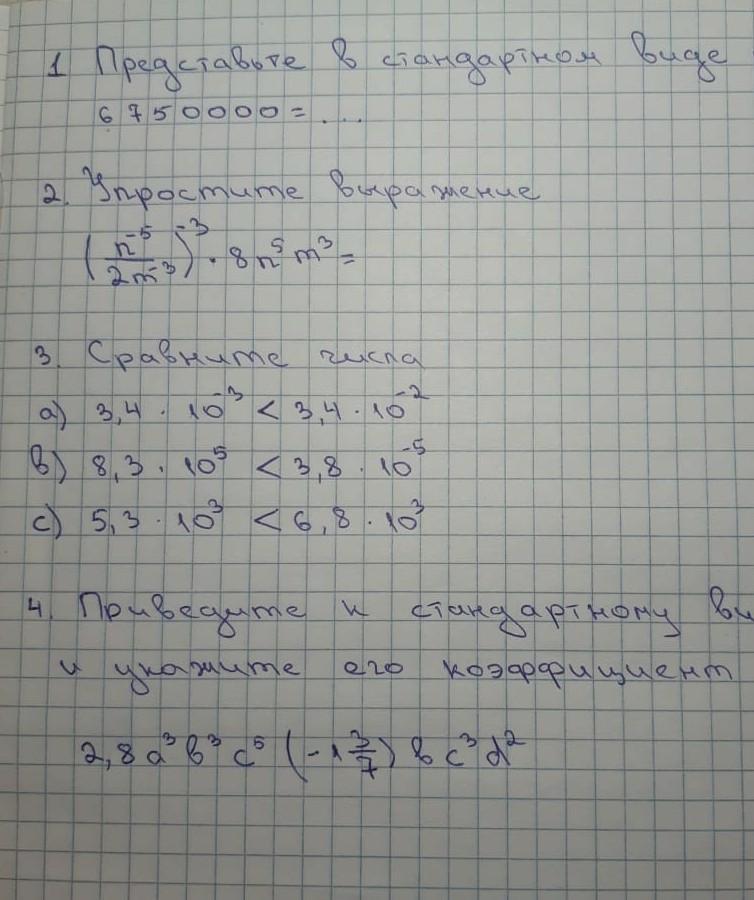 1 Представьте в стандартном виде
6750000 = ...
2. Упростите выражение
(n⁻⁵/2m⁻³)⁻³ · 8n⁵m³ =
3. Сравните числа
а) 3,4 · 10⁻³ < 3,4 · 10⁻²
в) 8,3 · 10⁵ < 3,8 · 10⁻⁵
с) 5,3 · 10³ < 6,8 · 10³
4. Приведите к стандартному ви
и укажите его коэффициент
2,8 a³ b³ c⁵ (-1 3/7) b c³ d²